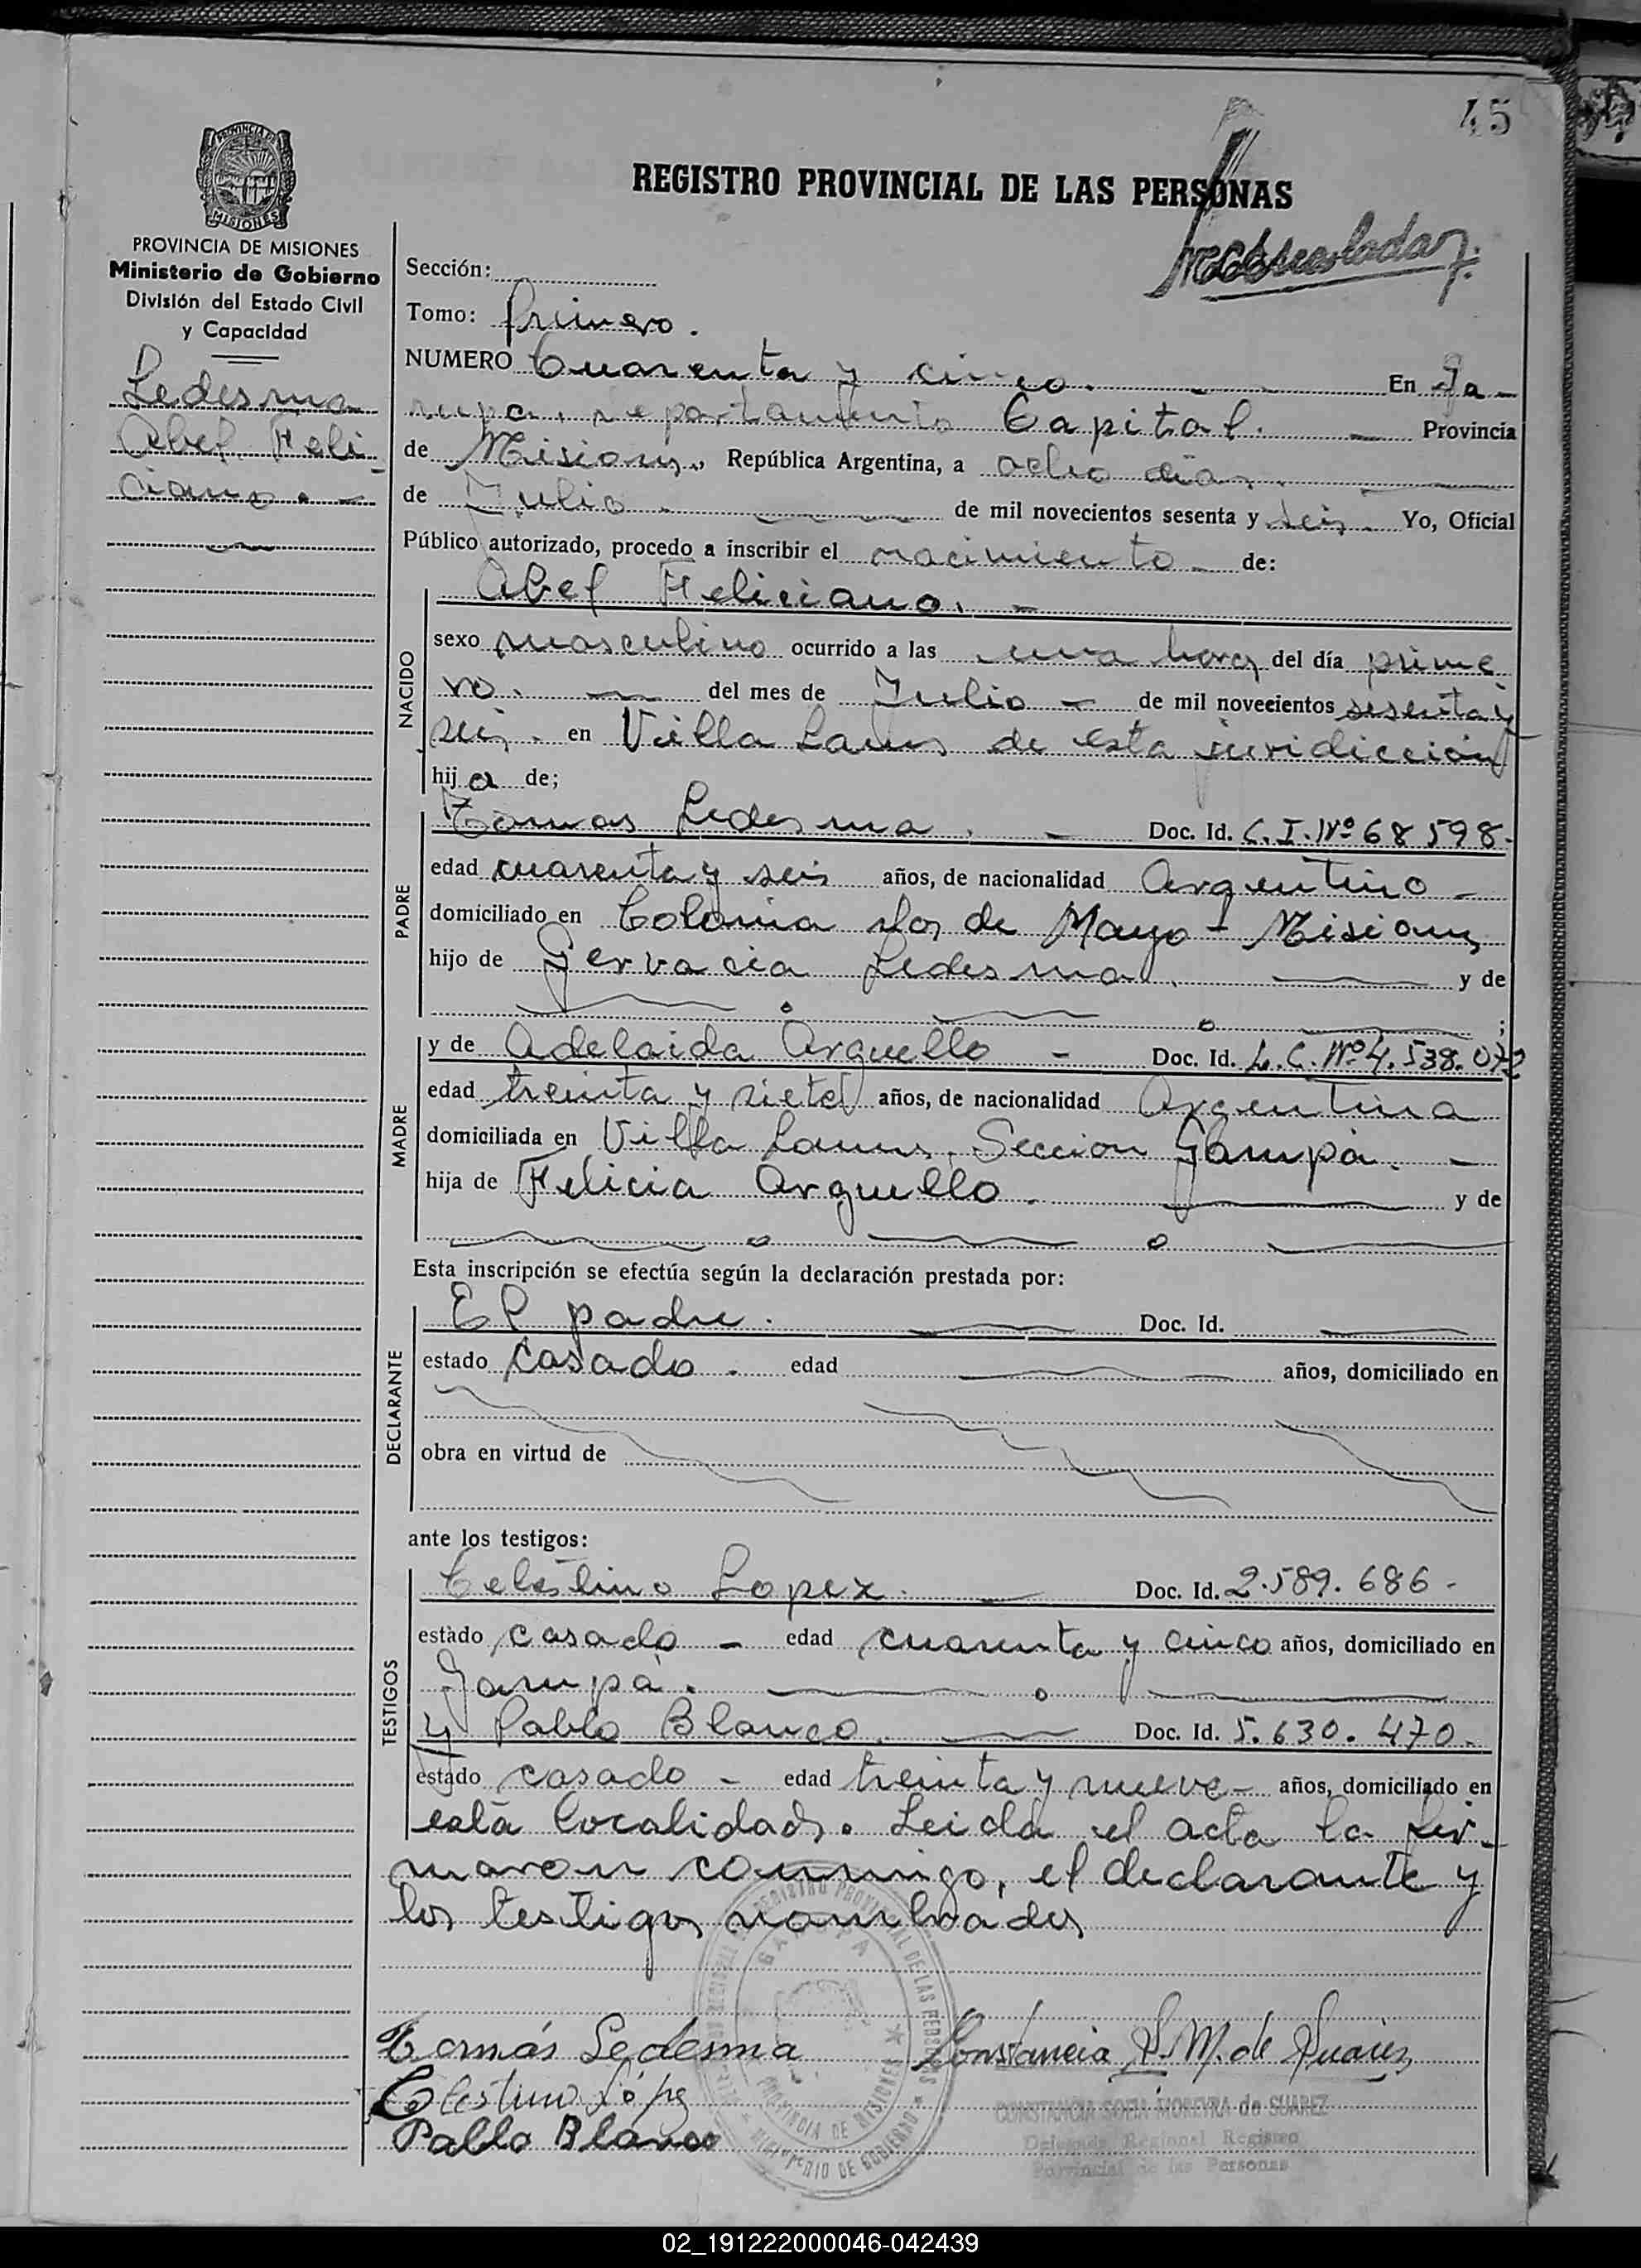 45
PROVINCIA DE
MISIONES
REGISTRO PROVINCIAL DE LAS PERSONAS
PROVINCIA DE MISIONES
Ministerio de Gobierno
División del Estado Civil
y Capacidad
Ledesma
Abel Feli-
ciano. -
Sección:
Tomo: Primero.
NUMERO Cuarenta y cinco. En Ga-
rupa, departamento Capital. Provincia
de Misiones, República Argentina, a ocho días.
de Julio. de mil novecientos sesenta y seis. Yo, Oficial
Público autorizado, procedo a inscribir el nacimiento de:
Abel Feliciano. -
NACIDO
sexo masculino ocurrido a las una hora del día prime
ro. del mes de Julio - de mil novecientos sesenta y
seis. en Villa Lanus de esta juridicción
hij o de;
PADRE
Tomas Ledesma. - Doc. Id. C.I. Nº 68598-
edad cuarenta y seis años, de nacionalidad Argentino -
domiciliado en Colonia Dos de Mayo - Misiones
hijo de Gervacia Ledesma. y de
;
MADRE
y de Adelaida Arguello - Doc. Id. L.C. Nº 4.538.072
edad treinta y siete años, de nacionalidad Argentina
domiciliada en Villa Lanus, Seccion Garupá. -
hija de Felicia Arguello. y de
Esta inscripción se efectúa según la declaración prestada por:
DECLARANTE
El padre. Doc. Id.
estado casado. edad años, domiciliado en
obra en virtud de
ante los testigos:
TESTIGOS
Celestino Lopez. Doc. Id. 2.589.686-
estado casado - edad cuarenta y cinco años, domiciliado en
Garupá.
y Pablo Blanco. Doc. Id. 5.630.470-
estado casado - edad treinta y nueve - años, domiciliado en
esta localidad. Leida el acta la fir-
maron conmigo, el declarante y
los testigos nombrados
REGISTRO PROVINCIAL DE LAS PERSONAS
GARUPA
PROVINCIA DE MISIONES
MINISTERIO DE GOBIERNO
Tomás Ledesma
Constancia S. M. de Suarez
Celestino López
Pablo Blanco
CONSTANCIA SOFIA MOREYRA de SUAREZ
Delegada Regional Registro
Provincial de las Personas
02_191222000046-042439